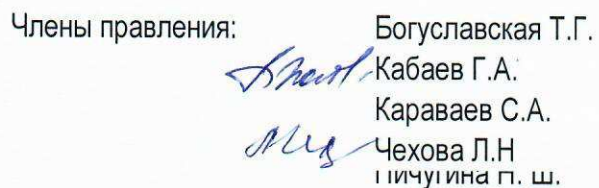 Члены правления: Богуславская Т.Г.
Кабаев Г.А.
Караваев С.А.
Чехова Л.Н
Пичугина Н. Ш.